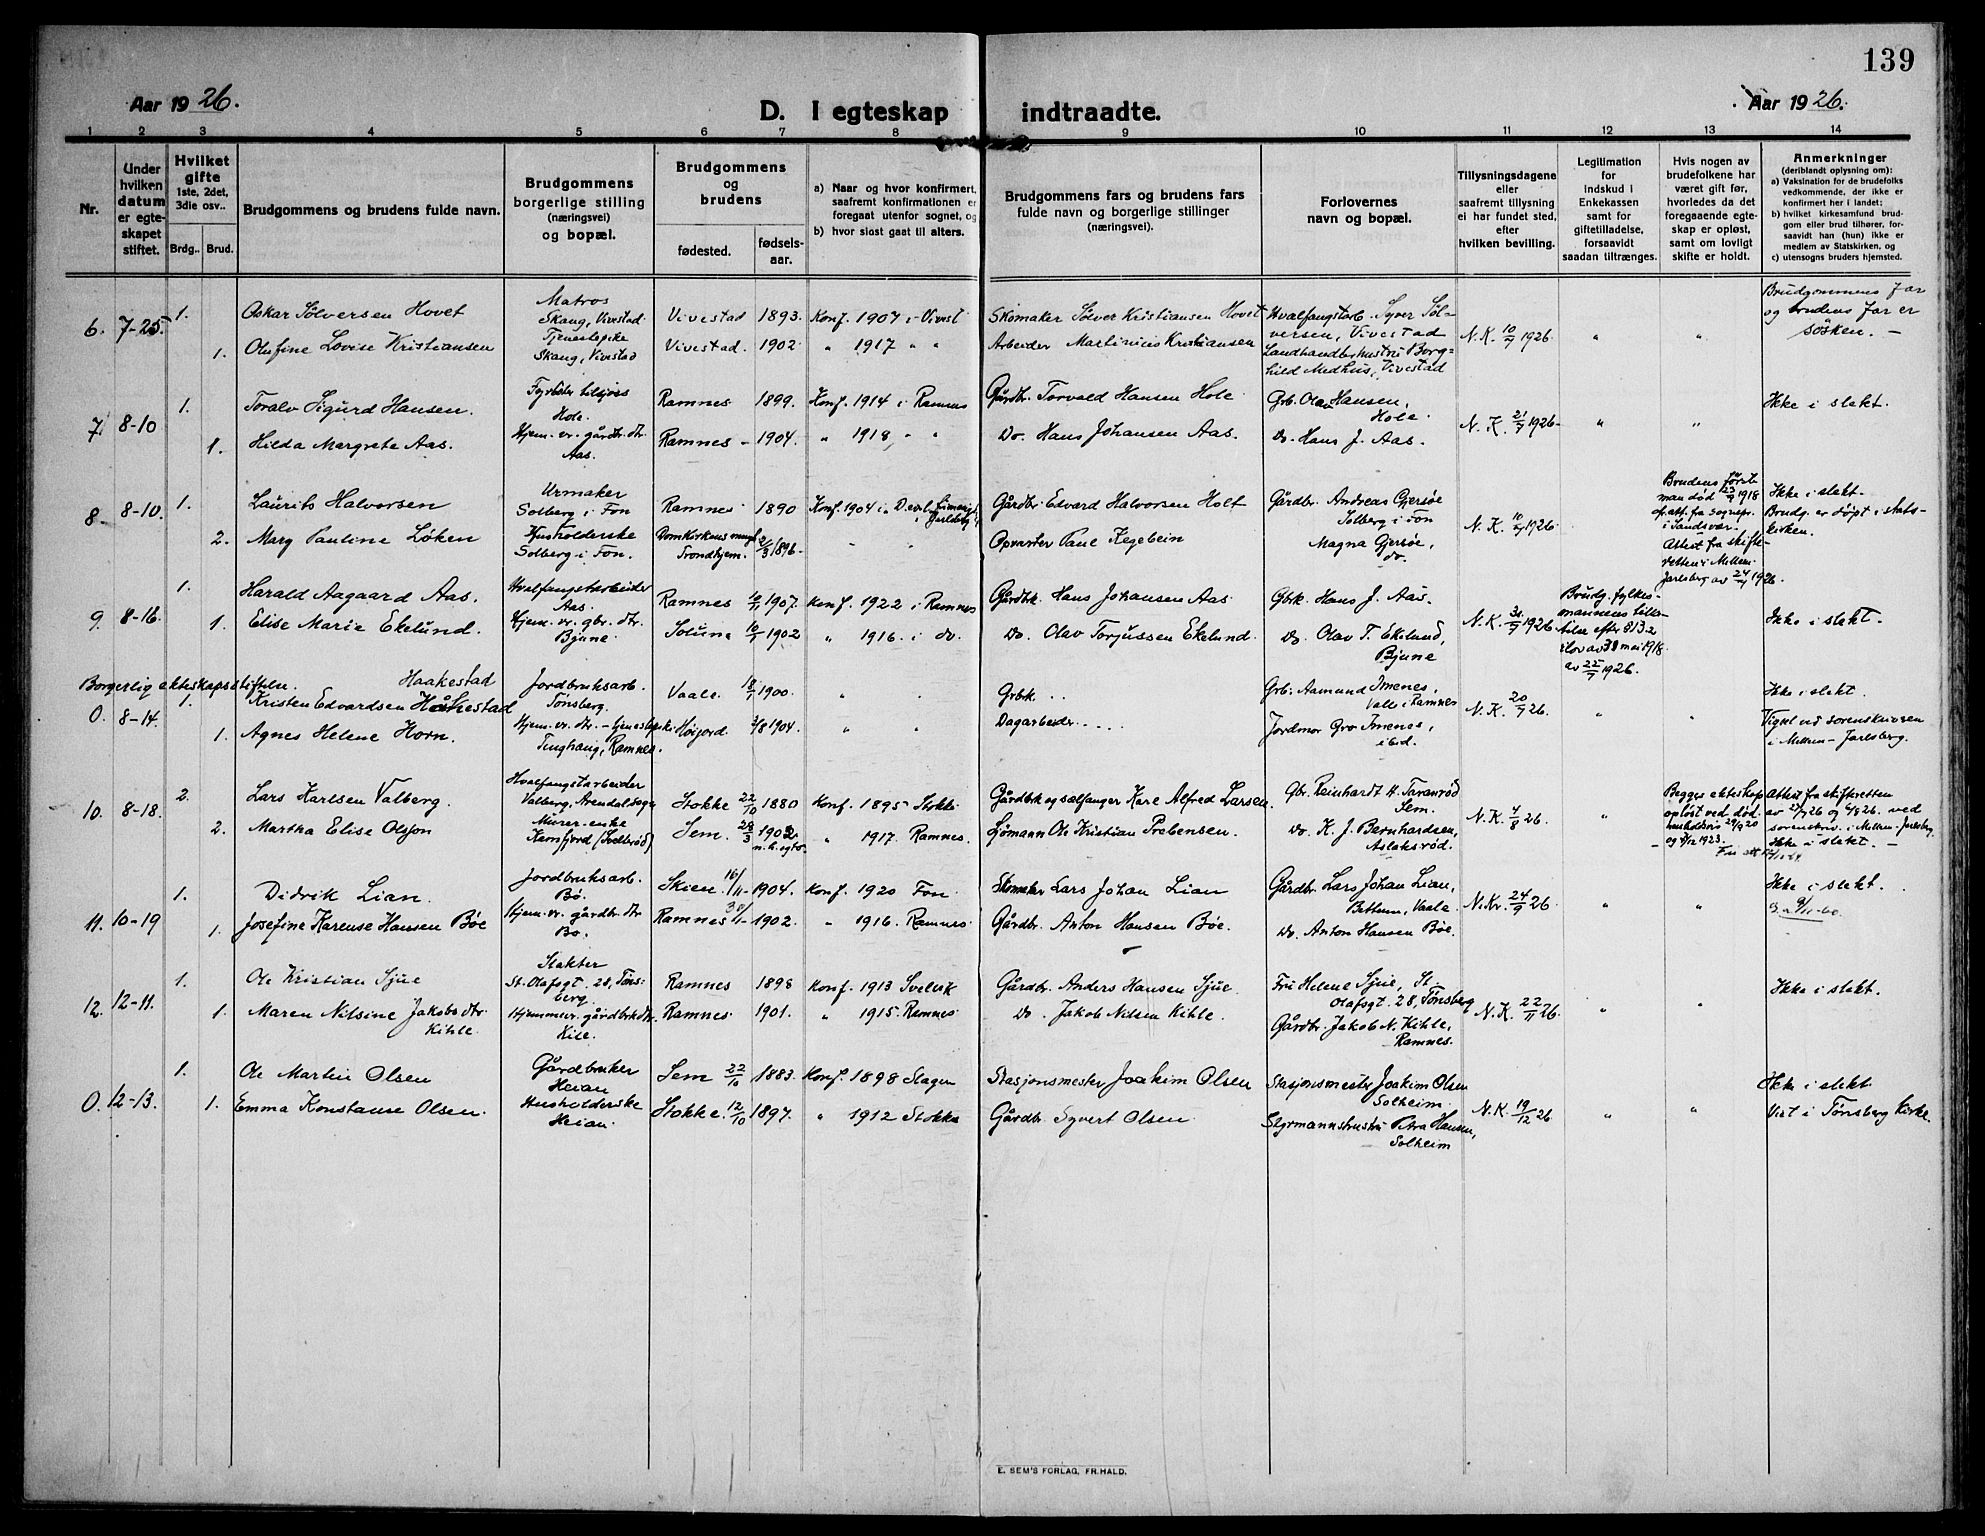 139
Aar 1926.
D. I egteskap indtraadte.
Aar 1926.
1 2 3 4 5 6 7 8 9 10 11 12 13 14
Nr.
Under hvilken datum er egteskapet stiftet.
Hvilket gifte 1ste, 2det, 3die osv..
Brdg.. Brud.
Brudgommens og brudens fulde navn.
Brudgommens borgerlige stilling (næringsvei) og bopæl.
Brudgommens og brudens
fødested. fødsels-aar.
a) Naar og hvor konfirmert, saafremt konfirmationen er foregaat utenfor sognet, og
b) hvor sidst gaat til alters.
Brudgommens fars og brudens fars fulde navn og borgerlige stillinger (næringsvei).
Forlovernes navn og bopæl.
Tillysningsdagene eller saafremt tillysning ei har fundet sted, efter hvilken bevilling.
Legitimation for Indskud i Enkekassen samt for giftetilladelse, forsaavidt saadan tiltrænges.
Hvis nogen av brudefolkene har været gift før, hvorledes da det foregaaende egteskap er opløst, samt om lovligt skifte er holdt.
Anmerkninger (deriblandt oplysning om):
a) Vaksination for de brudefolks vedkommende, der ikke er konfirmert her i landet;
b) hvilket kirkesamfund brudgom eller brud tilhører, forsaavidt han (hun) ikke er medlem av Statskirken, og
c) utensogns bruders hjemsted.
6. 7-25 1. Oskar Sølversen Hovet Matros Skaug, Vivestad Vivestad 1893. Konf. 1907 i Vivest Skomaker Sølver Kristiansen Hovet Hvalfangstarb. Syver Sølversen, Vivestad N.K. 10/7 1926. " " Brudgommens far og brudens far er søsken. —
1. Olufine Lovise Kristiansen Tjenestepike Skaug, Vivestad Vivestad. 1902. " 1917 " " Arbeider Martinius Kristiansen Landhandlerhustru Borghild Medhus, Vivestad
7. 8-10 1. Toralv Sigurd Hansen. Fyrbøter tilsjøss Hole. Ramnes 1899. Konf. 1914 i Ramnes Gårdbr. Torvald Hansen Hole. Grb. Olav Hansen, Hole. N.K. 21/7 1926- " " Ikke i slekt.
1. Hilda Margrete Aas. Hjem.vr. gårdbr. dtr. Aas. Ramnes - 1904. " 1918, " " Do. Hans Johansen Aas. Do. Hans J. Aas.
8. 8-10. 1. Laurits Halvorsen Urmaker Solberg i Fon Ramnes 1890 Konf. 1904 i Gårdbr. Edvard Halvorsen Holt Gårdbr. Andreas Gjersøe Solberg i Fon N.K. 10/7 1926. Brudens første man død 1918 Ikke i slekt. Brudg. er døpt i statskirken.
2. Mary Pauline Løken Husholderske Solberg i Fon. Domkirkens Trondhjem. 2/3 1896- Opvarter Paul Kegebein Magna Gjersøe, do. Attest fra skifteretten i Mellem Jarlsberg av 24/7 1926.
9. 8-16. 1. Harald Aagaard Aas. Hvalfangstarbeider Aas. Ramnes 1907. Konf. 1922 i Ramnes Gårdbk. Hans Johansen Aas Gbk. Hans J. Aas. N.K. 31/7 1926 Brudg. fylkesmannens tillatelse efter § 13.2 i lov av 31 mai 1918. av 22/7 1926. Ikke i slekt.
1. Elise Marie Ekelund. Hjem. vr. gbr. dtr. Bjune Solum 1902 " 1916. i do. Do. Olav Torjussen Ekelund. Do. Olav T. Ekelund, Bjune
Borgerlig ekteskapsstiftelse.
0. 8-14. 1. Haakestad Kristen Edvardsen Håkestad Jordbruksarb. Tønsberg. Vaale. 1900. " " Grbk. . . Grb. Aamund Imenes, Valle i Ramnes N.K. 20/7 26. " " Ikke i slekt. Vigsel ved sorenskriveren i Mellem-Jarlsberg.
1. Agnes Helene Horn. Hjem.vr. dtr. - tjenestepike Tinghaug, Ramnes. Høijord. 3/8 1904. " " Dagarbeider . . . . Jordmor Gro Imenes, ibid.
10. 8-18. 2. Lars Karlsen Valberg. Hvalfangstarbeider Valberg, Arendal sogn Stokke 22/10 1880 Konf. 1895 Stokke Gårdbk og sælfanger Karl Alfred Larsen. Gbr. Reinhardt H. Taranrød Sem. N.K. 4/8 26. " Begges ekteskap opløst ved død. Attest fra skifteretten av 27/7 26 og 4/8 26. ved sorenskriv. i Mellem-Jarlsberg. Ikke i slekt. —
2. Martha Elise Olsson Murer-enke Kamfjord (Solbrød) Sem. 28/3 1902. " 1917. Ramnes. Sjømann Ole Kristian Prebensen. Do. K. J. Bernhardsen, Aslaksrød.
11. 10-19 1. Didrik Lian. Jordbruksarb. Bø. Skien. 16/11 1904. Konf. 1920 Fon. Skomaker Lars Johan Lian Gårdbr. Lars Johan Lian, Bettum, Vaale. N.Kr. 24/9 26. " " Ikke i slekt.
1. Josefine Karense Hansen Bøe Hjem. vr. gårdbr. dtr Bø. Ramnes 30/11 1902. " 1916. Ramnes. Gårdbr. Anton Hansen Bøe. Do. Anton Hansen Bøe.
12. 12-11. 1. Ole Kristian Sjue Slakter St. Olafsgt. 28, Tønsberg. Ramnes 1898 Konf. 1913 Svelvik Gårdbr. Anders Hansen Sjue. Fru Helene Sjue, St. Olafsgt. 28, Tønsberg N.K. 22/11 26. " " Ikke i slekt.
1. Maren Nilsine Jakobsdtr Kihle. Hjemmevr. gårdbrk dtr. Kile. Ramnes. 1901. " 1915. Ramnes. Do. Jakob Nilsen Kihle. Gårdbr. Jakob N. Kihle, Ramnes.
0. 12-13. 1. Ole Martin Olsen Gårdbruker Heian Sem 22/10 1883. Konf. 1898 Slagen Stasjonsmester Joakim Olsen Stasjonsmester Joakim Olsen Solheim. N.K. 19/12 26 " " Ikke i slekt. Viet i Tønsberg kirke.
1. Emma Konstanse Olsen. Husholderske Heian. Stokke. 12/10 1897. " 1912 Stokke Gårdbr. Syvert Olsen Styrmannshustru Petra Hansen, Solheim
E. SEM'S FORLAG, FR.HALD.